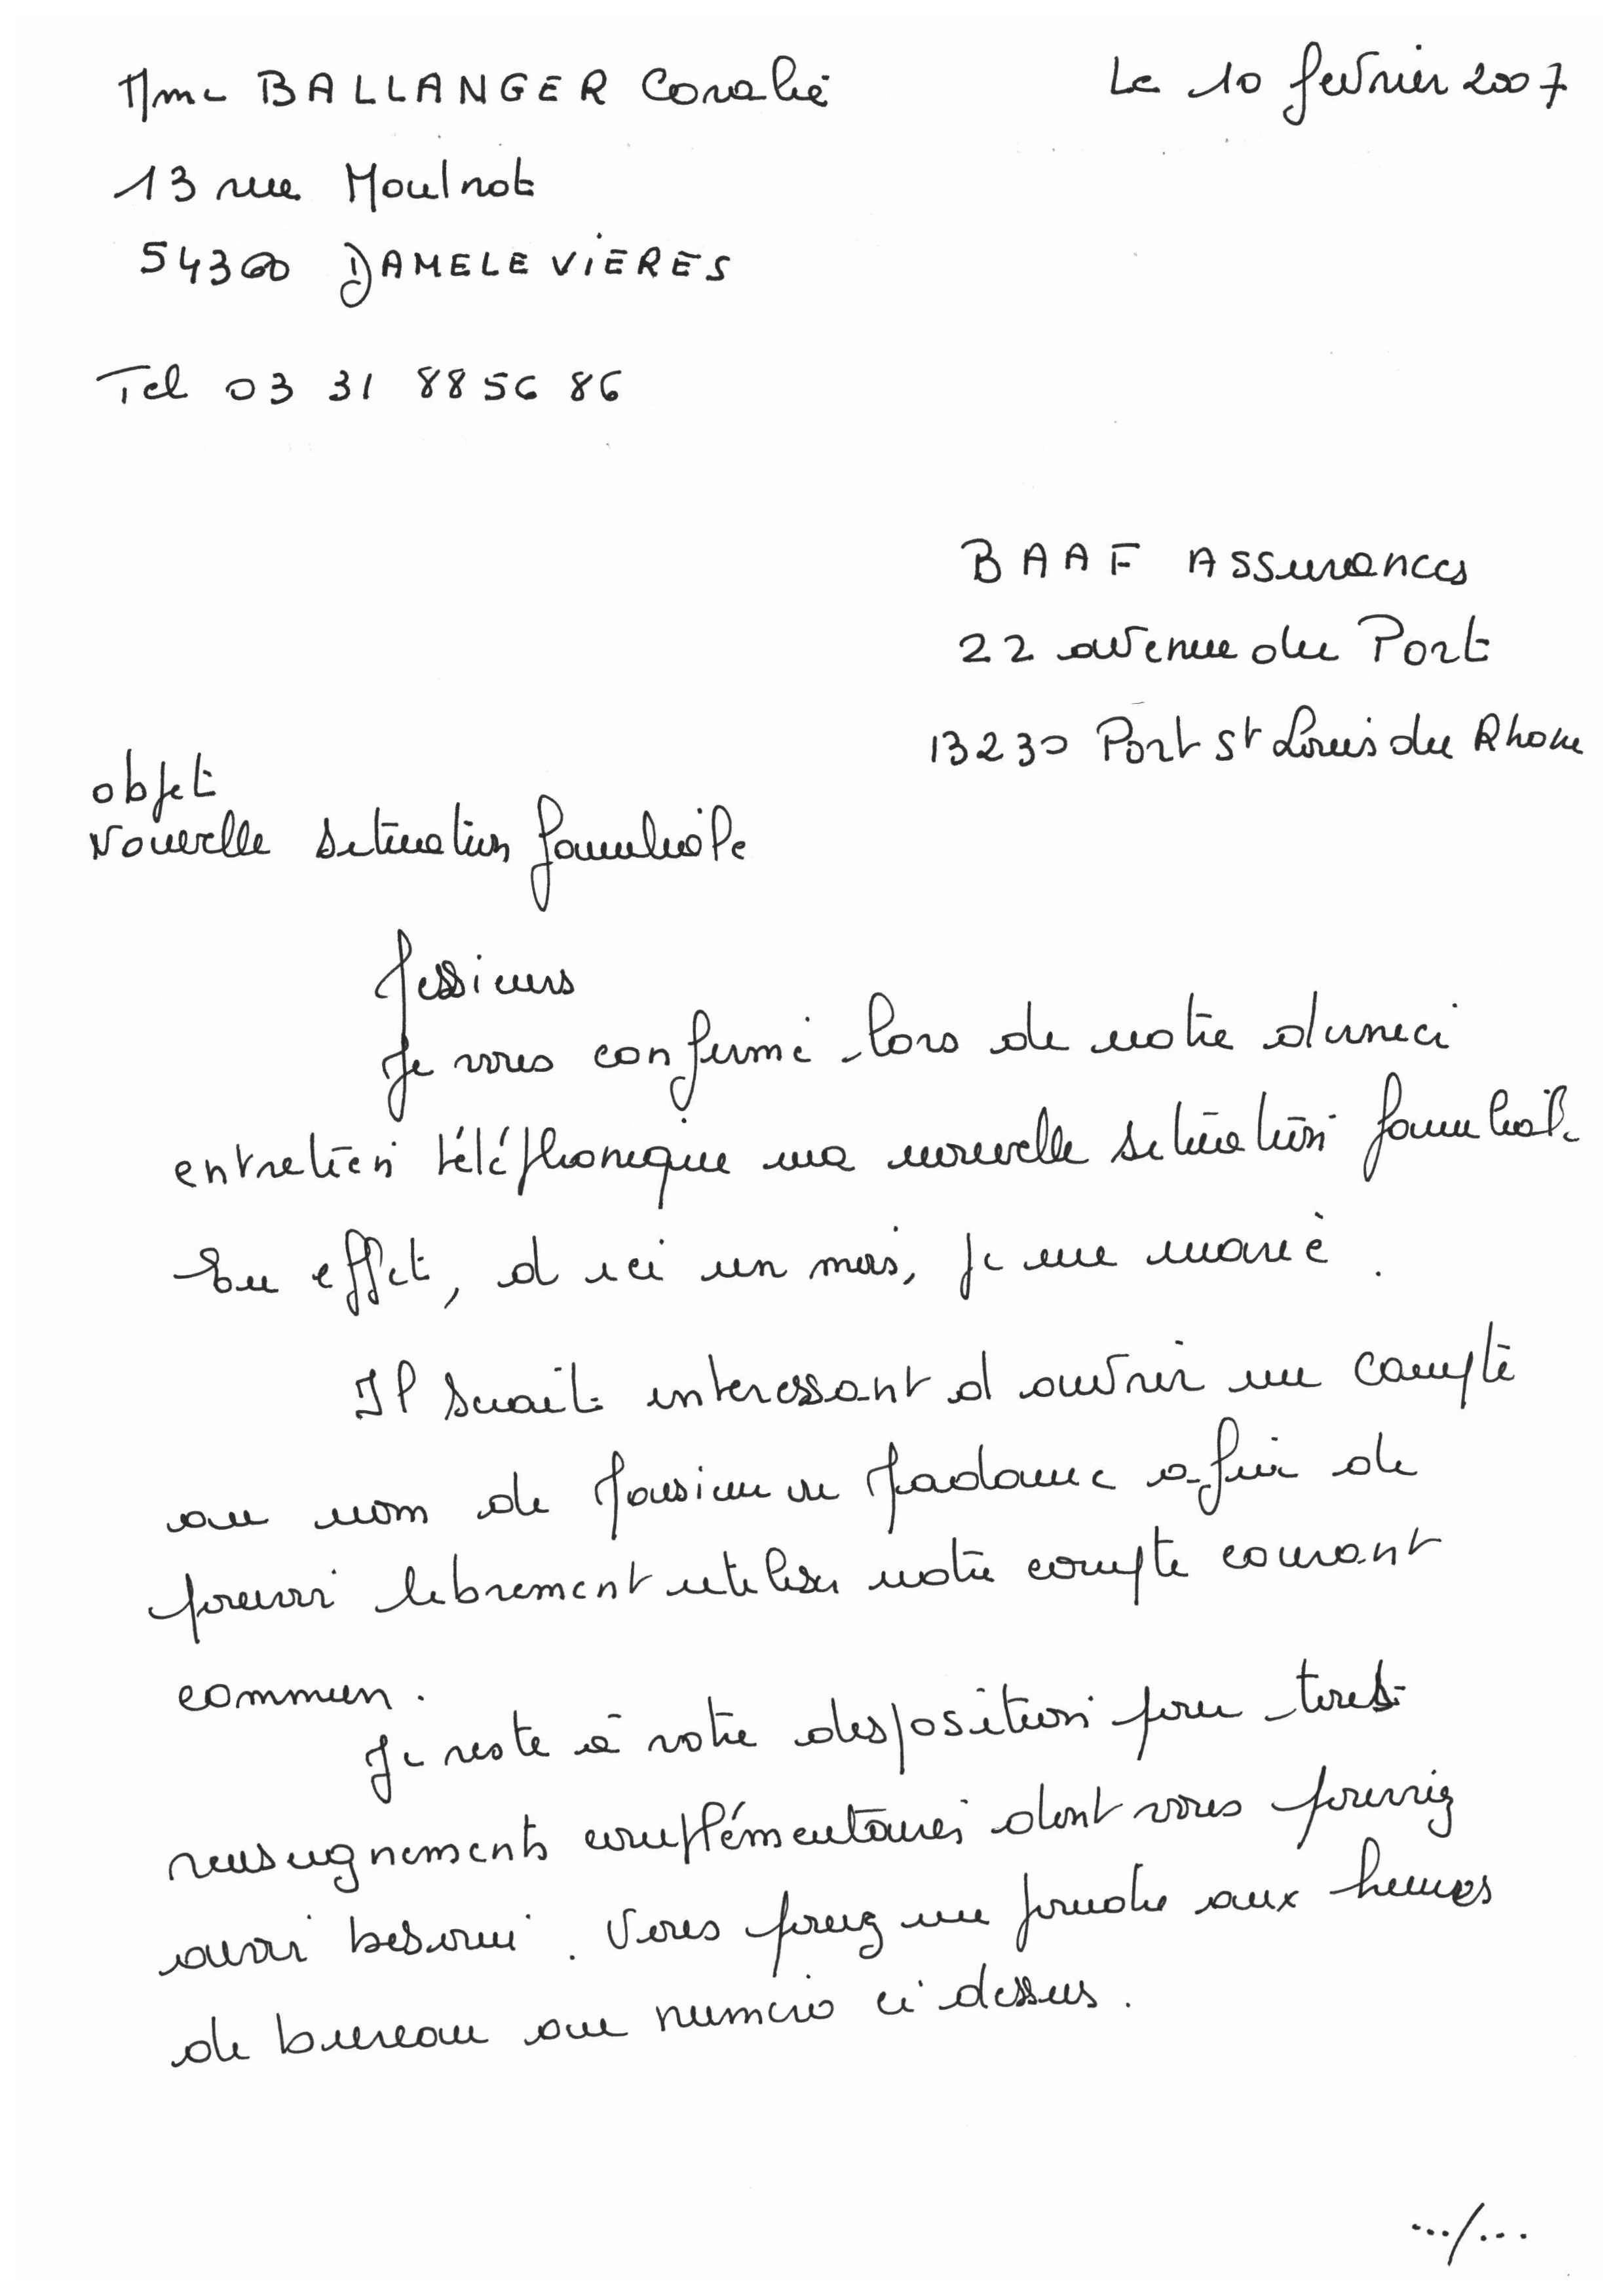 Mme BALLANGER Coralie
Le 10 fevrier 2007
13 rue Moulnot
54360 DAMELEVIERES
Tel 03 31 88 56 86
BAAF Assurances
22 avenue du Port
13230 Port St Louis du Rhone
objet
Nouvelle situation familiale
Messieurs
Je vous confirme lors de notre dernier
entretien téléphonique ma nouvelle situation familiale
En effet, d ici un mois, je me marie.
Il serait interessant d ouvrir un compte
au nom de Monsieur Madame afin de
pouvoir librement utiliser notre compte courant
commun.
Je reste à votre disposition pour tous
renseignements complémentaires dont vous pourriez
avoir besoin. Vous pouvez me joindre aux heures
de bureau au numero ci dessus.
.../...